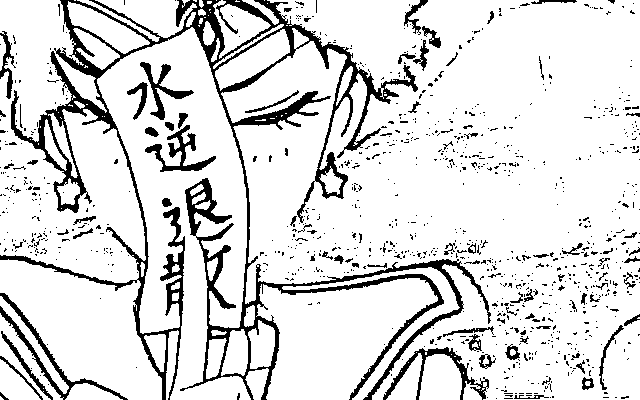 水逆退散